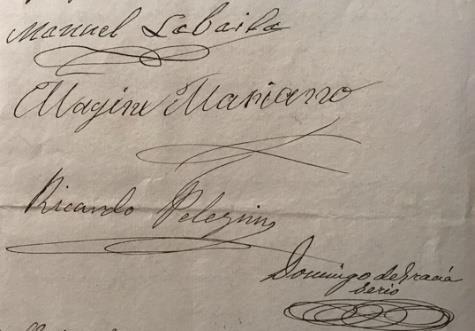 Manuel Labaila
Magin Mariano
Ricardo Pelegrin
Domingo de Gracia
Serio